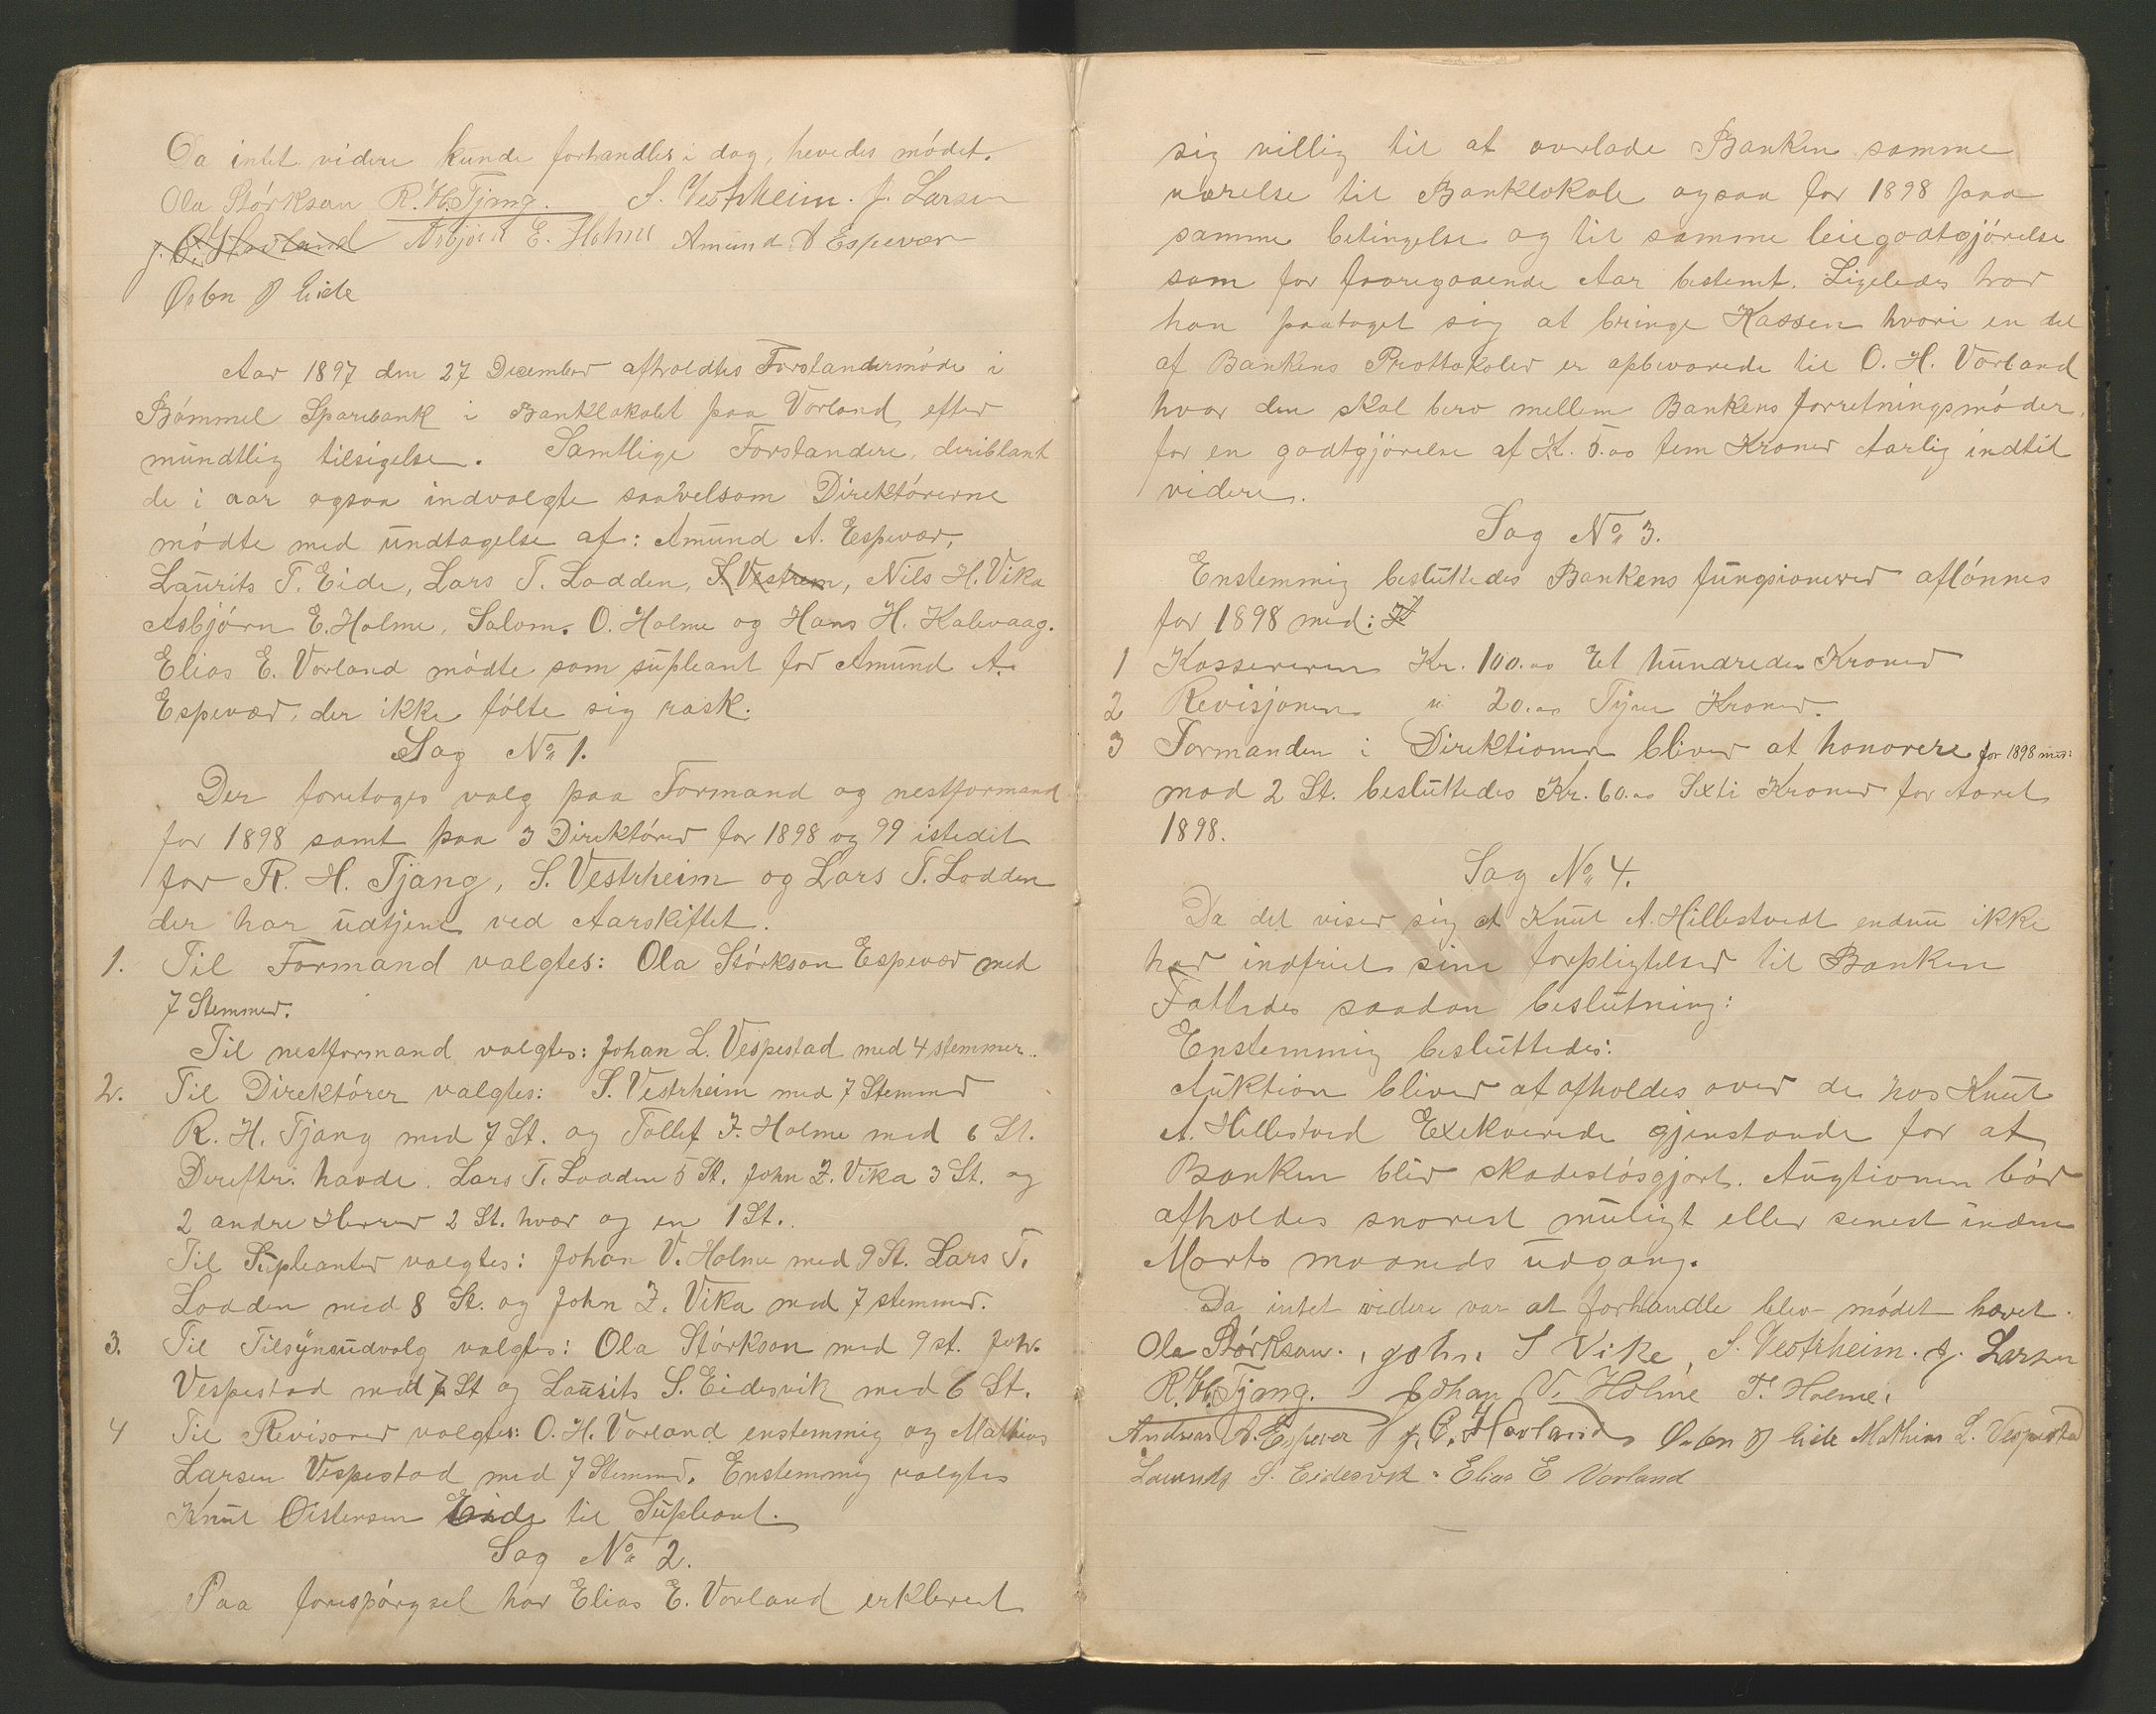 Da intet videre kunde forhandles i dag, hevedes mödet.
Ola Störkson R. H. Tjong. S. Vestrheim. J. Larsen
J. O. Hovland Asbjörn E. Holme Amund A Espevær
Osbn J Eide
Aar 1897 den 27 December afholdtes Forstandermöde i
Bömmel Sparebank i Banklokalet paa Vorland efter
mundtlig tilsigelse. Samtlige Forstandere, deriblant
de i aar ogsaa indvalgte saavelsom Direktörerne
mödte med undtagelse af: Amund A. Espevær,
Laurits T. Eide, Lars T. Lodden, S. Vestrem, Nils H. Vika
Asbjörn E. Holme, Salom. O. Holme og Hans H. Kalevaag.
Elias E. Vorland mödte som supleant for Amund A.
Espevær, der ikke fölte sig rask.
Sag No 1.
Der foretoges valg paa Formand og nestformand
for 1898 samt paa 3 Direktörer for 1898 og 99 istedet
for R. H. Tjong, S. Vestrheim og Lars T. Lodden
der har udtjent ved Aarskiftet.
1. Til Formand valgtes: Ola Störkson Espevær med
7 Stemmer.
Til nestformand valgtes: Johan L. Vespestad med 4 stemmer.
2. Til Direktörer valgtes: S. Vestrheim med 7 Stemmer
R. H. Tjong med 7 St. og Tollef J. Holme med 6 St.
Derefter havde Lars T. Lodden 5 St. John I. Vika 3 St. og
2 andre Herrer 2 St. hver og en 1 St.
Til Supleanter valgtes: Johan V. Holme med 9 St. Lars T.
Lodden med 8 St. og John I. Vika med 7 stemmer.
3. Til Tilsynsudvalg valgtes: Ola Störkson med 9 st. Joh.
Vespestad med 7 St og Laurits S. Eidesvik med 6 St.
4 Til Revisorer valgtes: O. H. Vorland enstemmig og Mathias
Larsen Vespestad med 7 Stemmer. Enstemmig valgtes
Knut Östensen Eide til Supleant.
Sag No 2.
Paa forespörgsel har Elias E. Vorland erkleret
sig villig til at overlade Banken samme
værelse til Banklokale ogsaa for 1898 paa
samme betingelse og til samme leiegodtgjörelse
som for foregaaende Aar bestemt. Ligeledes har
han paataget sig at bringe Kassen hvori en del
af Bankens Prottokoler er opbevarede til O. H. Vorland
hvor den skal bero mellem Bankens forretningsmöder,
for en godtgjörelse af K. 5.00 fem Kroner Aarlig indtil
videre.
Sag No 3.
Enstemmig besluttedes Bankens fungsionerer aflönnes
for 1898 med:
1 Kassereren Kr. 100.00 Et hundrede Kroner
2 Revisjonen " 20.00 Tyve Kroner.
3 Formanden i Direktionen bliver at honorere for 1898 med:
mod 2 St. besluttedes Kr. 60.00 Sexti Kroner for Aaret
1898.
Sag No 4.
Da det viser sig at Knut A. Hillestvedt endnu ikke
har indfriet sine forpligtelser til Banken
Fattedes saadan beslutning:
Enstemmig besluttedes:
Auktion bliver at afholdes over de hos Knut
A. Hillestved Exekverede gjenstande for at
Banken blir skadeslösgjort. Augtionen bör
afholdes snarest muligt eller senest inden
Marts maaneds udgang.
Da intet videre var at forhandle blev mödet hævet.
Ola Störkson. John I Vike, S. Vestrheim. J. Larsen
R. H. Tjong. Johan V. Holme T. Holme.
Andreas A. Espever J. O. Hovland Osbn J Eide Mathias L. Vespestad
Laurits S. Eidesvik. Elias E Vorland